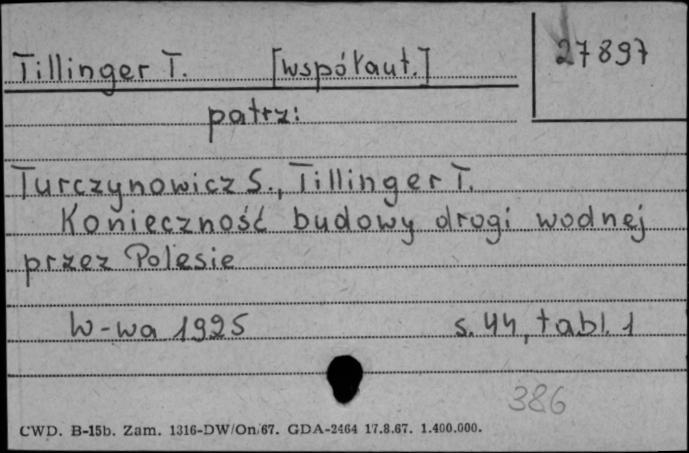 Tillinger T. [współaut.] 27897
patrz:
Turczynowicz S., Tillinger T.
Konieczność budowy drogi wodnej
przez Polesie
W-wa 1925 s. 44, tabl. 1
386
CWD. B-15b. Zam. 1316-DW/On/67. GDA-2464 17.8.67. 1.400.000.